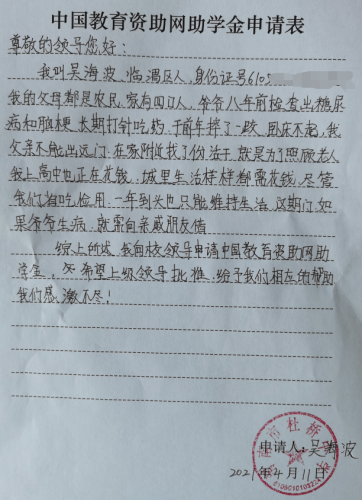 中国教育资助网助学金申请表
尊敬的领导您好：
我叫吴海波，临渭区人，身份证号6105
我的父母都是农民，家有四口人，爷爷八年前检查出糖尿
病和脑梗，长期打针吃药，于前年摔了一跌，卧床不起，我
父亲不能出远门，在家附近找了份活干，就是为了照顾老人
我上高中也正在花钱，城里生活样样都需花钱，尽管
我们省吃俭用，一年到头也只能维持生活，以期门如
果爷爷生病，就需向亲戚朋友借
综上所述，我向校领导申请中国教育资助网助
学金，希望上级领导批准，给予我们相应的帮助
我们感激不尽！
申请人：吴海波
2021年4月11日
市杜桥